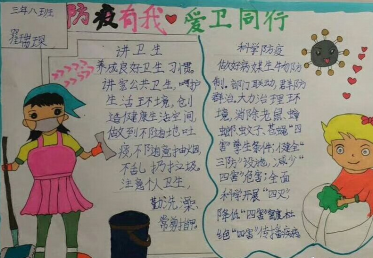 三年八班
防疫有我❤爱卫同行
讲卫生
养成良好卫生习惯,
讲究公共卫生,呵护
生活环境,创
造健康生活空间,
做到不随地吐
痰,不随意扔
不乱扔垃圾,
注意个人卫生,
勤洗澡,
常剪指甲。
科学防疫
做好病媒生物防
制,部门联动,群防
群治,大力治理环
境,消除老鼠、蟑
螂、蚊子、苍蝇"四
害"孳生条件,健全
三防"设施,减少"
四害"危害;全面
科学开展"四灭"
降低"四害"密度,杜
绝"四害"传播疾病